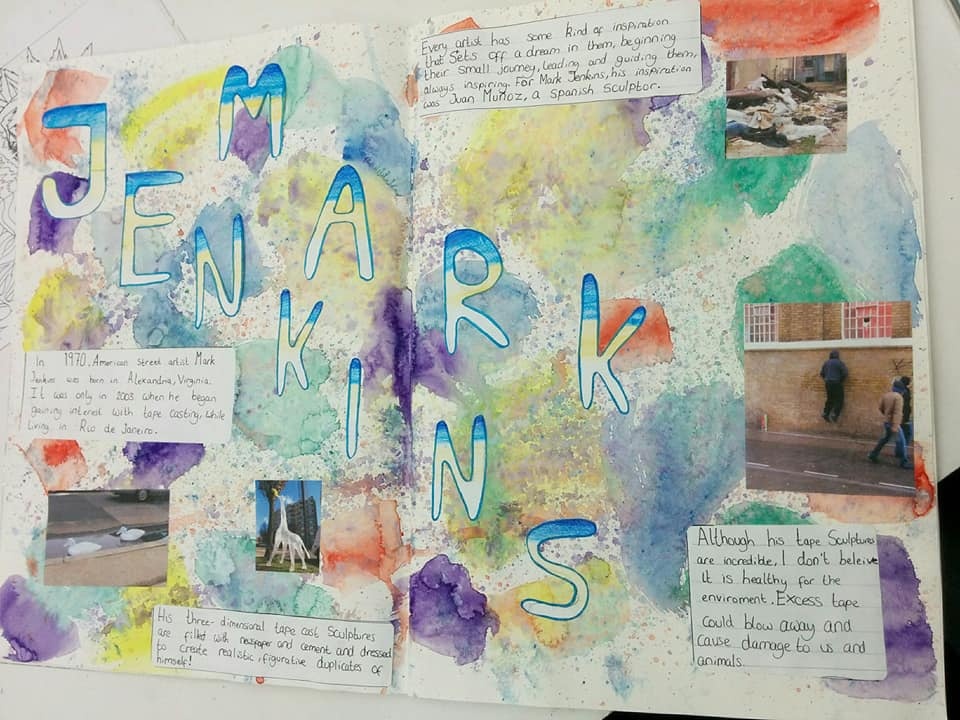 MARK
JENKINS
Every artist has some kind of inspiration
that sets off a dream in them, beginning
their small journey, leading and guiding them,
always inspiring. For Mark Jenkins, his inspiration
was Juan Muñoz, a Spanish Sculptor.
In 1970, American street artist Mark
Jenkins was born in Alexandria, Virginia.
It was only in 2003 when he began
gaining interest with tape casting, while
living in Rio de Janeiro.
His three-dimensional tape cast sculptures
are filled with newspaper and cement and dressed
to create realistic, figurative duplicates of
himself!
Although his tape Sculptures
are incredible, I don't beleive
it is healthy for the
enviroment. Excess tape
could blow away and
cause damage to us and
animals.